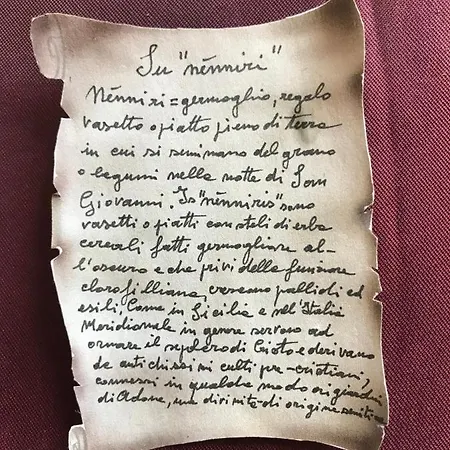 Su "nènniri"
Nènniri = germoglio, regalo
vasetto o piatto pieno di terra
in cui si seminano del grano
o legumi nella notte di San
Giovanni. Is "nènniris" sono
vasetti o piatti con steli di erba
cereali fatti germogliare al-
l'oscuro e che privi della funzione
clorofilliana, crescono pallidi ed
esili, Come in Sicilia e nell'Italia
Meridionale in genere servono ad
ornare il sepolcro di Cristo e derivano
da antichissimi culti pre-cristiani,
connessi in qualche modo ai giardini
di Adone, una divinità di origine semitica